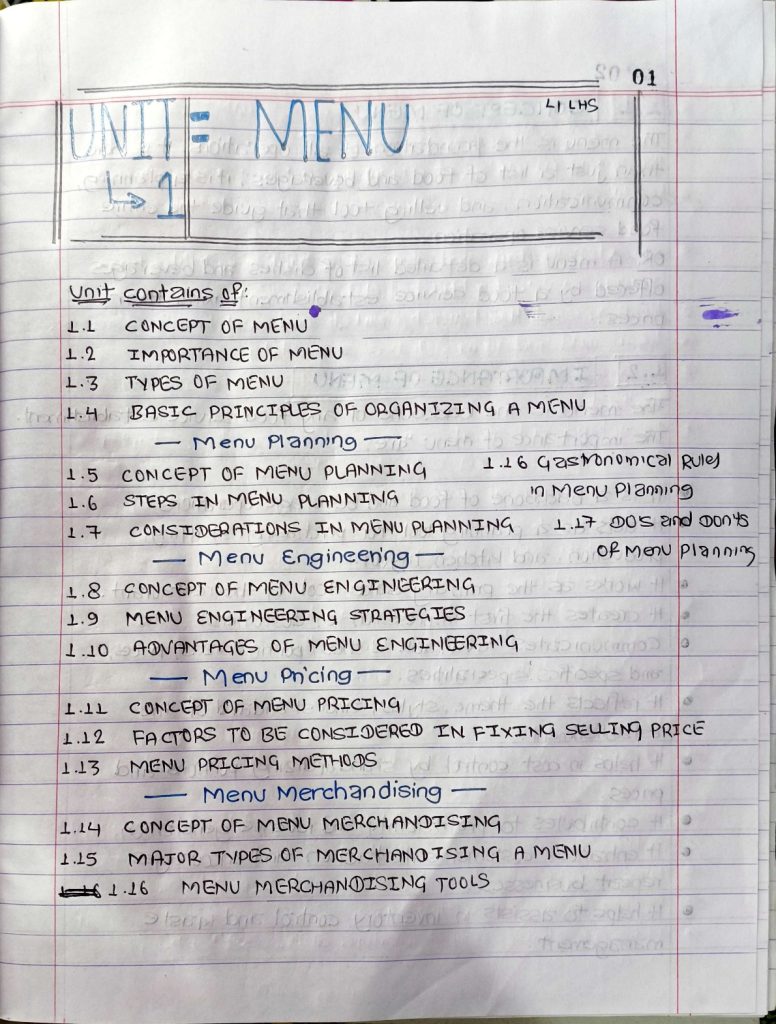 01
UNIT = MENU
4 LHS
↳ 1
Unit contains of:
1.1 CONCEPT OF MENU
1.2 IMPORTANCE OF MENU
1.3 TYPES OF MENU
1.4 BASIC PRINCIPLES OF ORGANIZING A MENU
— Menu Planning —
1.5 CONCEPT OF MENU PLANNING
1.16 Gastronomical Rules
1.6 STEPS IN MENU PLANNING
in Menu Planning
1.7 CONSIDERATIONS IN MENU PLANNING
1.17 DOS and DON'ts
OF Menu Planning
— Menu Engineering —
1.8 CONCEPT OF MENU ENGINEERING
1.9 MENU ENGINEERING STRATEGIES
1.10 ADVANTAGES OF MENU ENGINEERING
— Menu Pricing —
1.11 CONCEPT OF MENU PRICING
1.12 FACTORS TO BE CONSIDERED IN FIXING SELLING PRICE
1.13 MENU PRICING METHODS
— Menu Merchandising —
1.14 CONCEPT OF MENU MERCHANDISING
1.15 MAJOR TYPES OF MERCHANDISING A MENU
1.16 MENU MERCHANDISING TOOLS